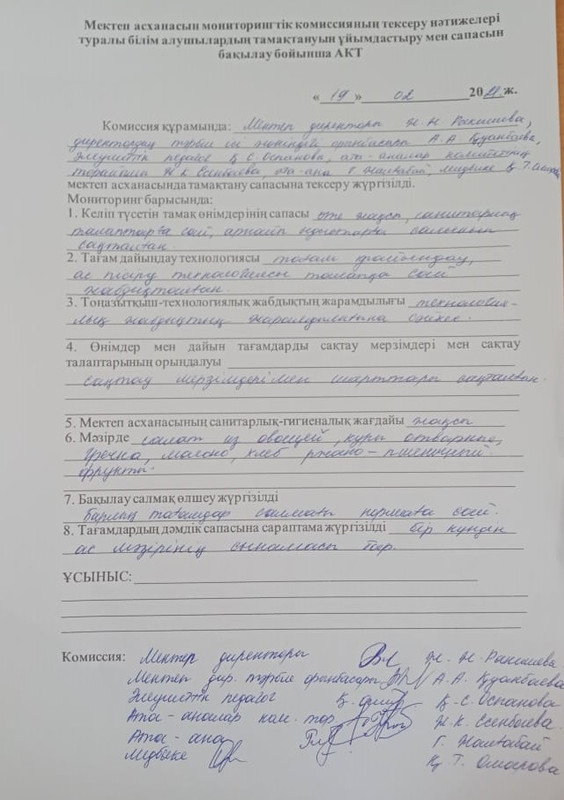 Мектеп асханасын мониторингтік комиссияның тексеру нәтижелері
туралы білім алушылардың тамақтануын ұйымдастыру мен сапасын
бақылау бойынша АКТ
« 19 » 02 20 ж.
Комиссия құрамында: Мектеп директоры Н.Н Ракишева,
директордың тәрбие ісі жөніндегі орынбасары А.А Құданбаева,
әлеуметтік педагог Қ С Оспанова, ата-аналар комитетінің
төрайымы Ж К Есенбаева, ата-ана Г. Жалғабай, медбике Қ Т.
мектеп асханасында тамақтану сапасына тексеру жүргізілді.
Мониторинг барысында:
1. Келіп түсетін тамақ өнімдерінің сапасы өте жақсы, санитарлық
талаптарға сай, арнайы
сақталған.
2. Тағам дайындау технологиясы тағам дайындау,
ас пісіру технологиясы талапқа сай
жабдықталған.
3. Тоңазытқыш-технологиялық жабдықтың жарамдылығы технология-
лық жабдықтың жарамдылығына сәйкес.
4. Өнімдер мен дайын тағамдарды сақтау мерзімдері мен сақтау
талаптарының орындалуы
сақтау мерзімдері мен шарттары сақталған.
5. Мектеп асханасының санитарлық-гигиеналық жағдайы жақсы
6. Мәзірде салат из овощей, куры отварные,
гречка, молоко, хлеб ржано-пшеничный
фрукты.
7. Бақылау салмақ өлшеу жүргізілді
барлық тағамдар салмағы нормаға сай.
8. Тағамдардың дәмдік сапасына сараптама жүргізілді бір күндік
ас мәзірінің сынамасы бар.
ҰСЫНЫС:
Комиссия: Мектеп директоры Н. Н. Ракишева
Мектеп дир. тәрбие орынбасары А.А. Құданбаева
Әлеуметтік педагог Қ. С. Оспанова
Ата-аналар ком. төр. Ж.К. Есенбаева
Ата-ана Г. Жалғабай
Медбике Қ. Т. Омарова